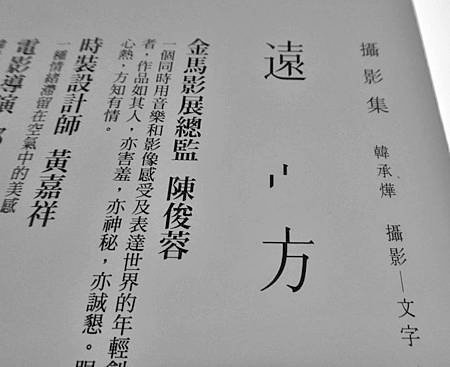 攝影集 韓承燁 攝影—文字
遠方
金馬影展總監 陳俊蓉
一個同時用音樂和影像感受及表達世界的年輕創
者,作品如其人,亦害羞,亦神秘,亦誠懇。眼
心熱,方知有情。
時裝設計師 黃嘉祥
一種情緒滯留在空氣中的美感
電影導演